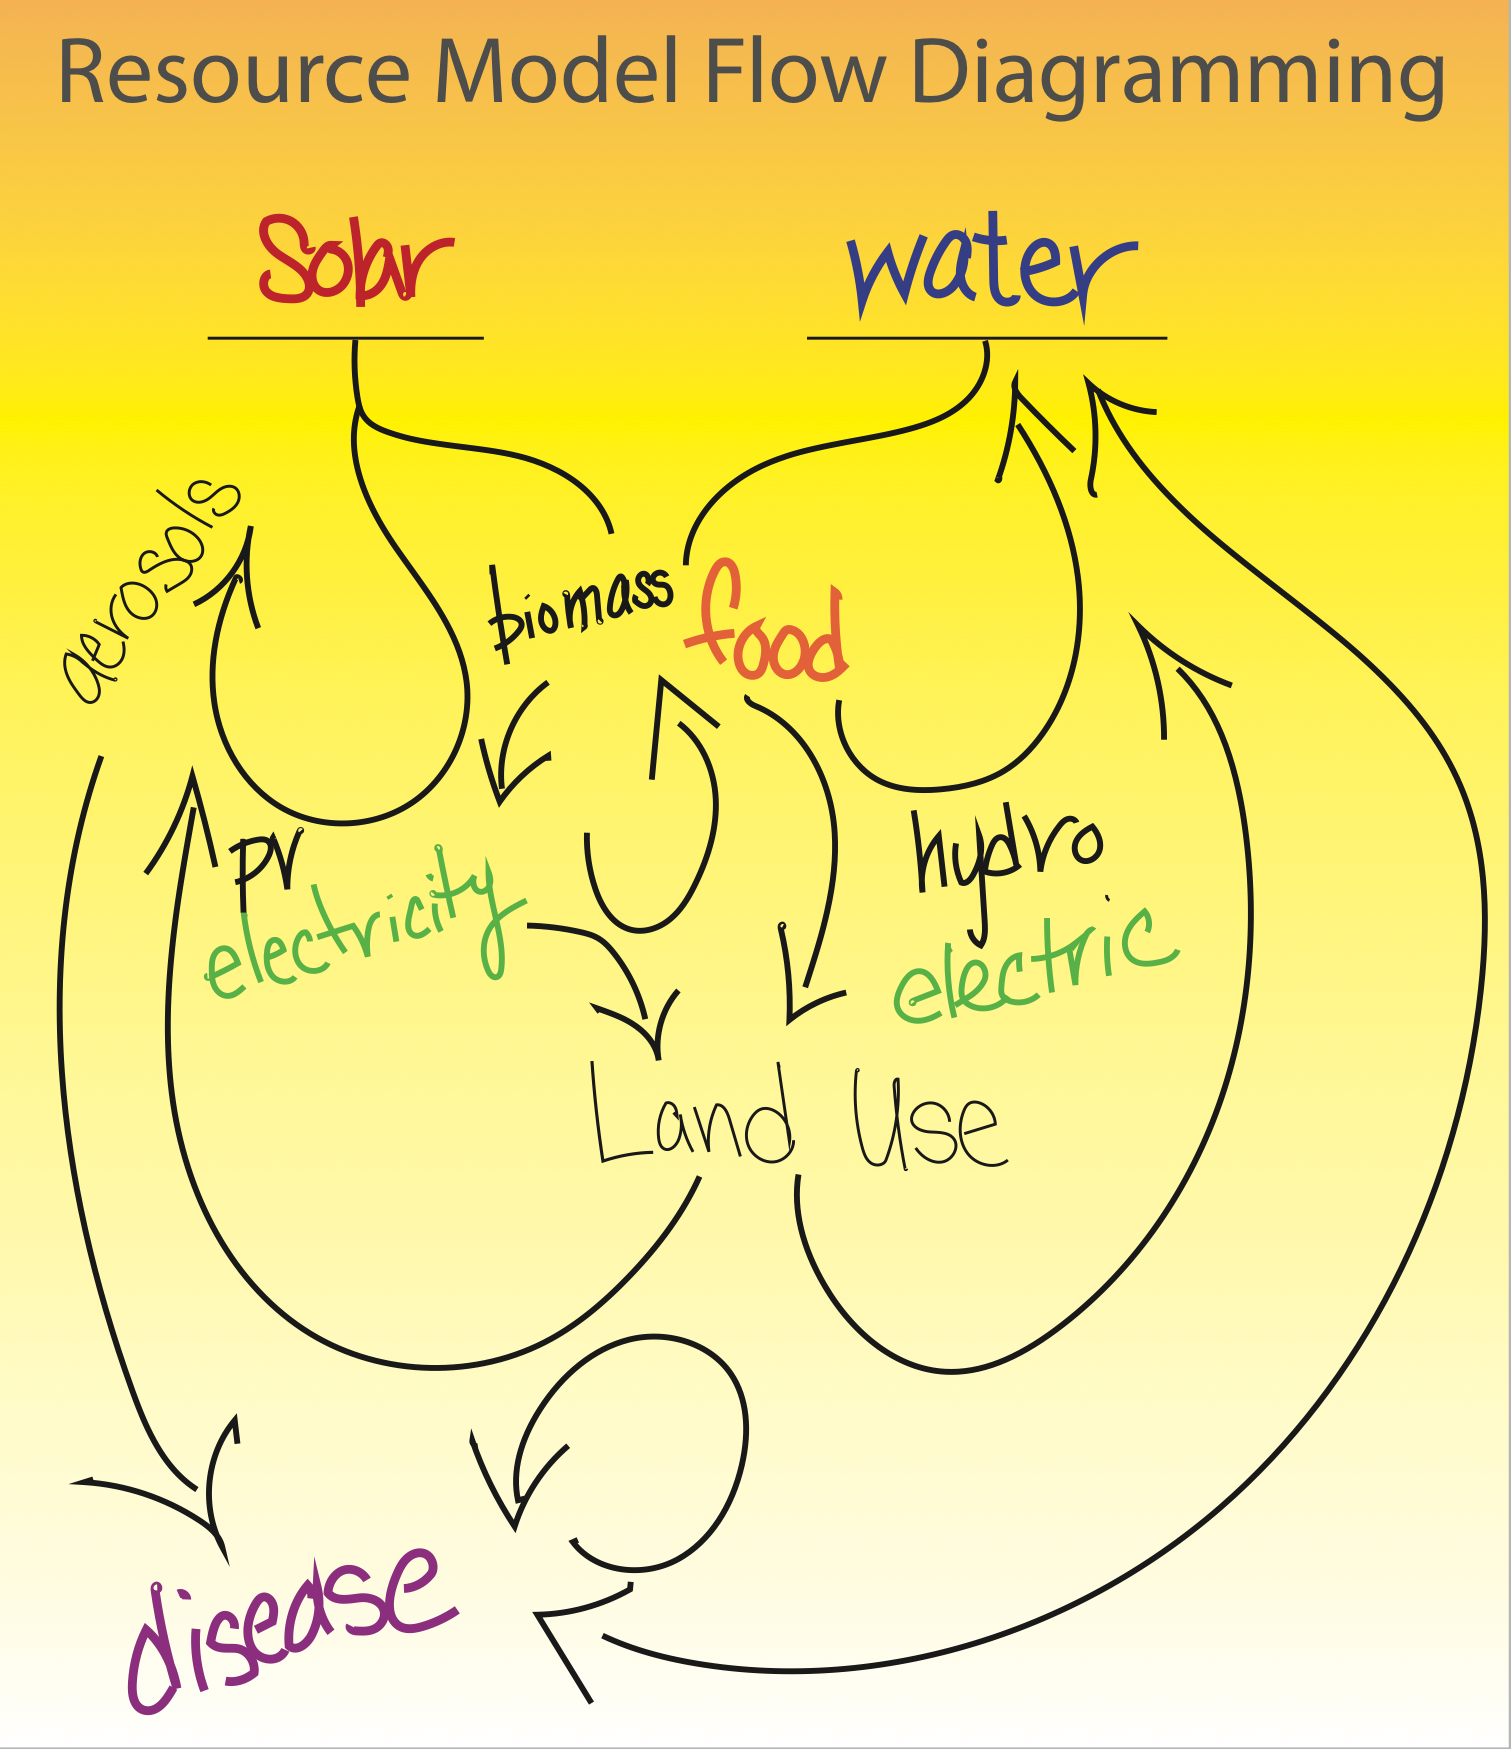 Resource Model Flow Diagramming
Solar
water
aerosols
biomass
food
pv
electricity
hydro
electric
Land Use
disease